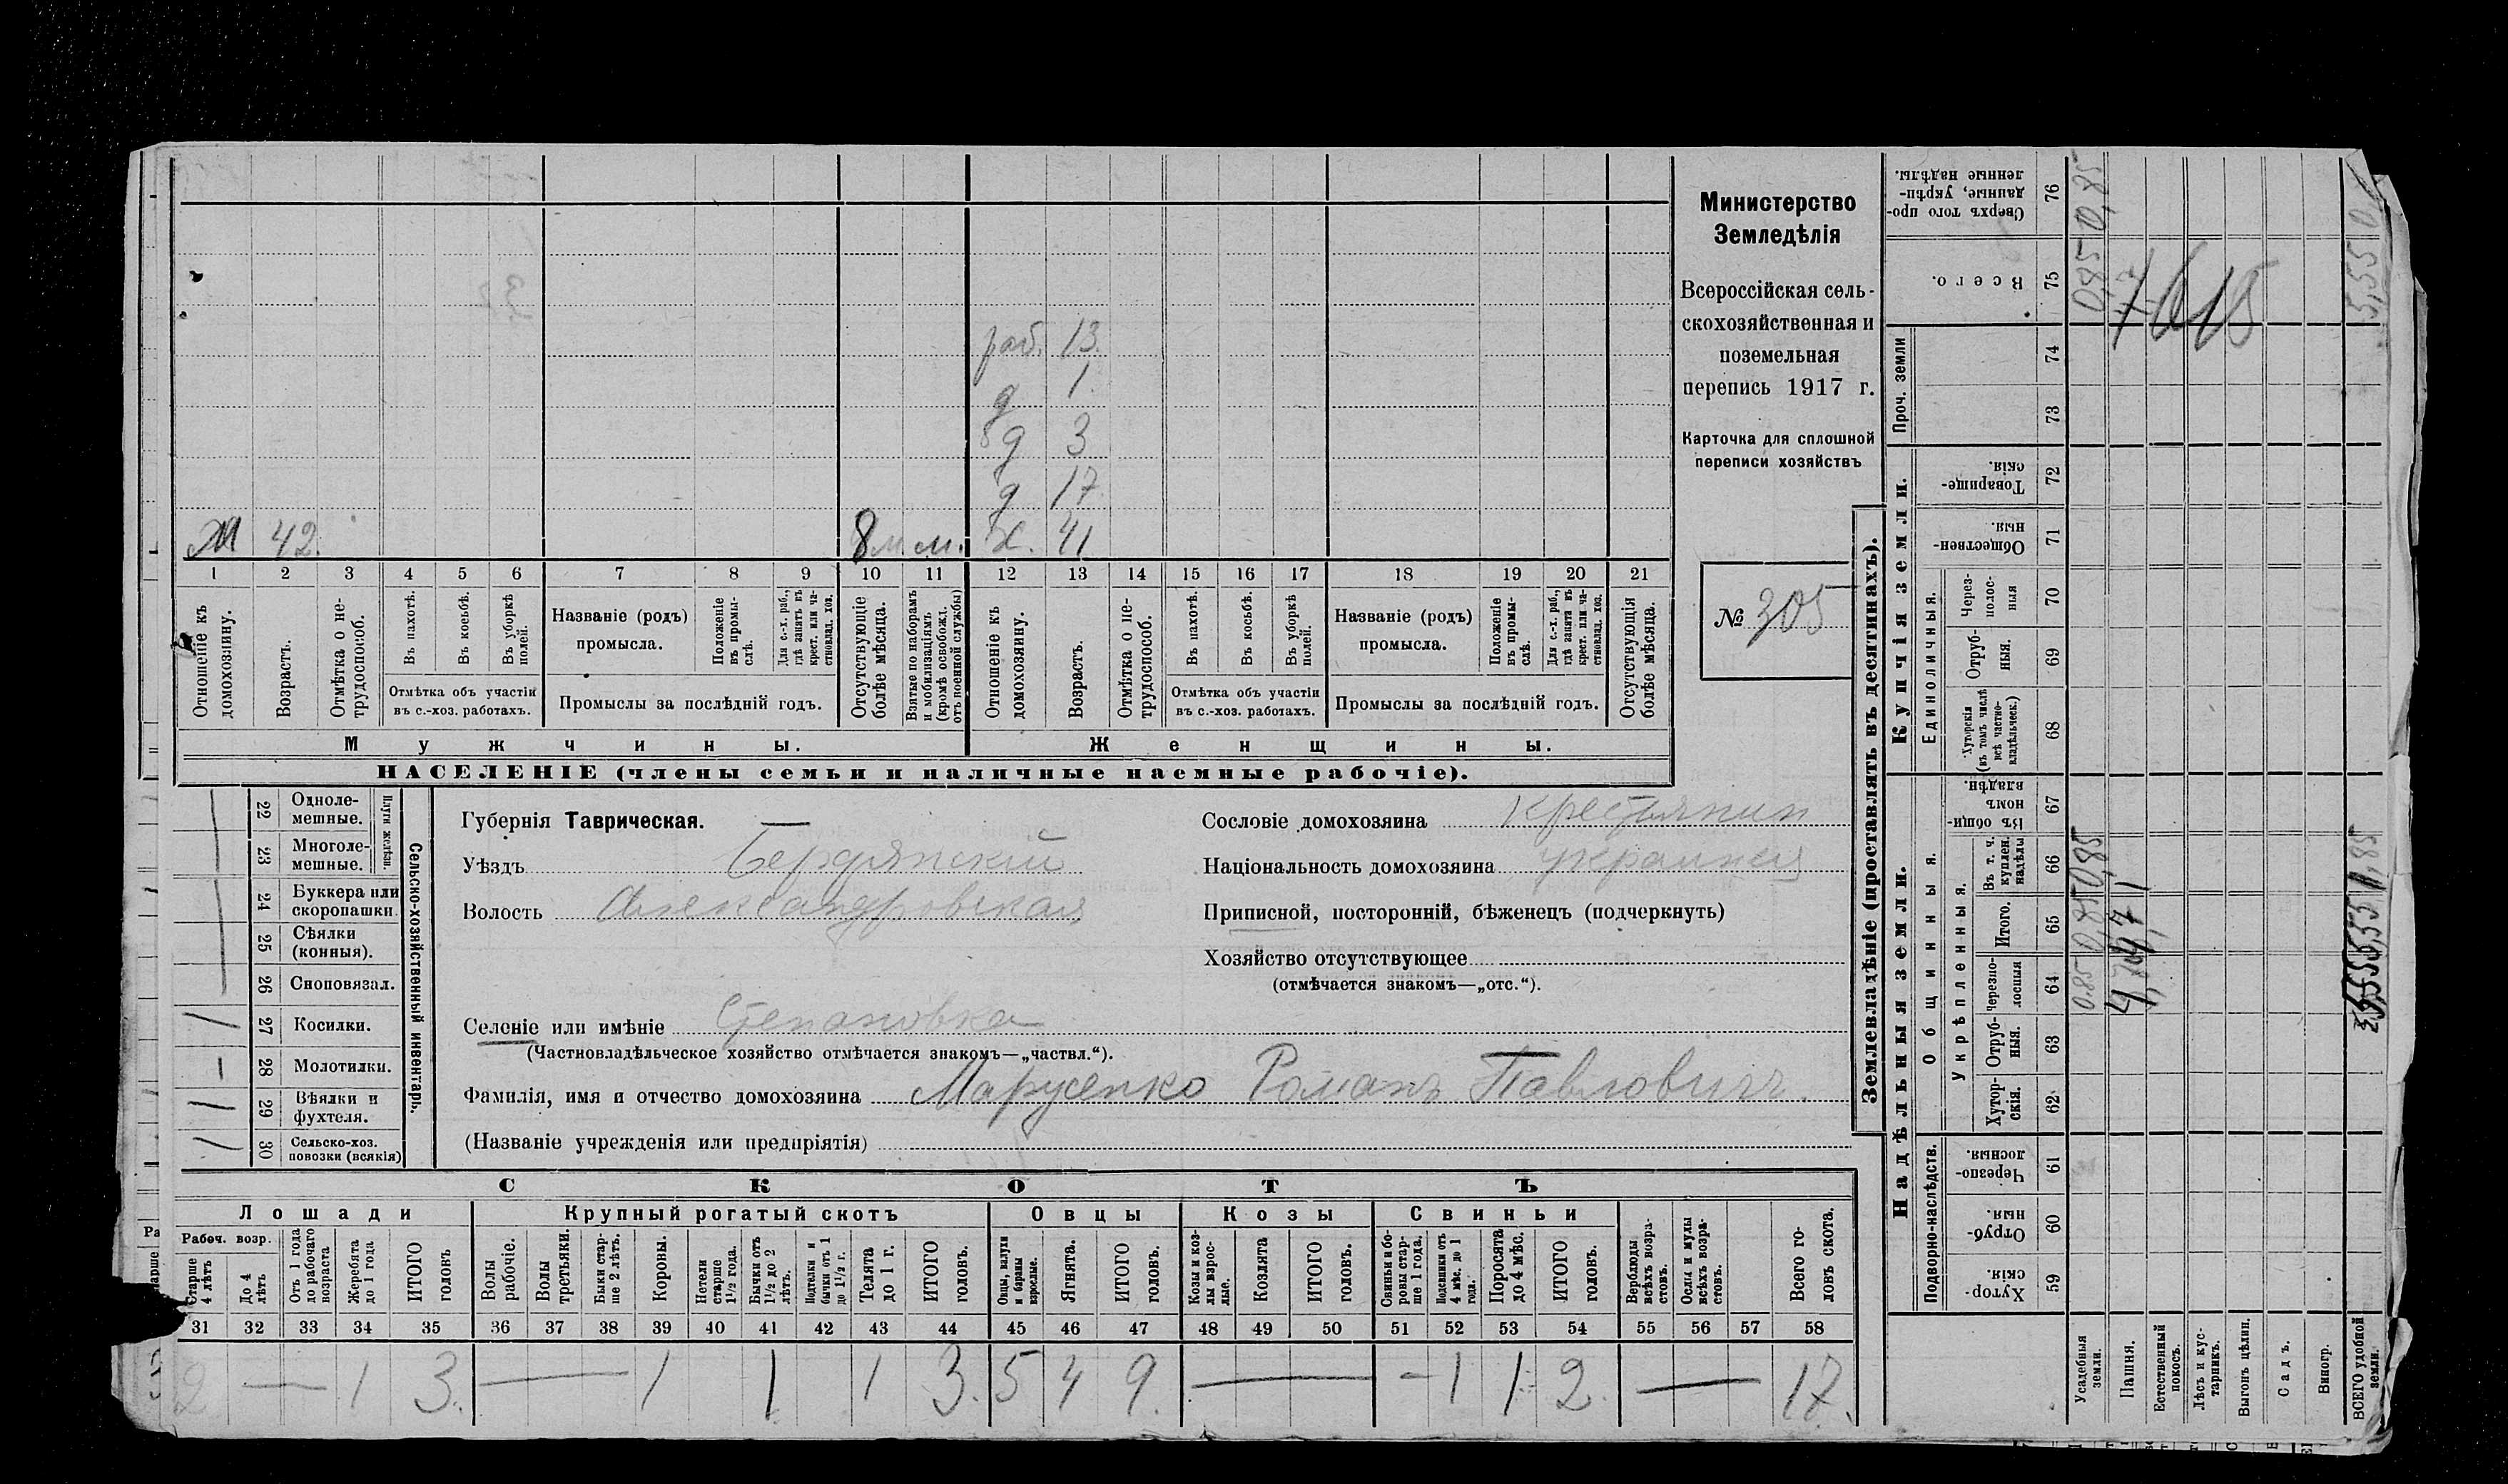 Министерство
Земледѣлія
Всероссійская сель-
скохозяйственная и
поземельная
перепись 1917 г.
Карточка для сплошной
переписи хозяйствъ
№ 305
раб. 13.
д 1.
д 3
д 17.
М 42. 8 м. м. Ж. 41
1 2 3 4 5 6 7 8 9 10 11 12 13 14 15 16 17 18 19 20 21
Отношеніе къ домохозяину.
Возрастъ.
Отмѣтка о не-трудоспособ.
Въ пахотѣ.
Въ косьбѣ.
Въ уборкѣ полей.
Отмѣтка объ участіи
въ с.-хоз. работахъ.
Названіе (родъ)
промысла.
Положеніе въ промы-слѣ.
Для с.-х. раб., гдѣ занятъ въ крест. или ча-стновлад. хоз.
Промыслы за послѣдній годъ.
Отсутствующіе болѣе мѣсяца.
Взятые по наборамъ и мобилизаціямъ (кромѣ освобожд. отъ военной службы)
Отношеніе къ домохозяину.
Возрастъ.
Отмѣтка о не-трудоспособ.
Въ пахотѣ.
Въ косьбѣ.
Въ уборкѣ полей.
Отмѣтка объ участіи
въ с.-хоз. работахъ.
Названіе (родъ)
промысла.
Положеніе въ промы-слѣ.
Для с.-х. раб., гдѣ занята въ крест. или ча-стновлад. хоз.
Промыслы за послѣдній годъ.
Отсутствующія болѣе мѣсяца.
Мужчины. Женщины.
НАСЕЛЕНІЕ (члены семьи и наличные наемные рабочіе).
22 Одноле-мешные.
23 Многоле-мешные.
Плуги желѣзн.
24 Буккера или скоропашки.
25 Сѣялки (конныя).
26 Сноповязал.
27 Косилки.
28 Молотилки.
29 Вѣялки и фухтеля.
30 Сельско-хоз. повозки (всякія)
Сельско-хозяйственный инвентарь.
Губернія Таврическая.
Уѣздъ Бердянскій
Волость Александровская
Селеніе или имѣніе Степановка
(Частновладѣльческое хозяйство отмѣчается знакомъ—„частвл.“).
Фамилія, имя и отчество домохозяина Марусенко Романъ Павловичъ.
(Названіе учрежденія или предпріятія)
Сословіе домохозяина крестьянин
Національность домохозяина украинец
Приписной, посторонній, бѣженецъ (подчеркнуть)
Хозяйство отсутствующее
(отмѣчается знакомъ—„отс.“).
СКОТЪ
Лошади Крупный рогатый скотъ Овцы Козы Свиньи
Рабоч. возр.
Старше 4 лѣтъ
До 4 лѣтъ
Отъ 1 года до рабочаго возраста
Жеребята до 1 года
ИТОГО головъ
Волы рабочіе.
Волы третьяки.
Быки стар-ше 2 лѣтъ.
Коровы.
Нетели старше 1½ года.
Бычки отъ 1½ до 2 лѣтъ.
Подтелки и бычки отъ 1 до 1½ г.
Телята до 1 г.
ИТОГО головъ.
Овцы, валухи и бараны взрослые.
Ягнята.
ИТОГО головъ.
Козы и коз-лы взрос-лые.
Козлята
ИТОГО головъ.
Свиньи и бо-ровы стар-ше 1 года.
Подсвинки отъ 4 мѣс. до 1 года.
Поросята до 4 мѣс.
ИТОГО головъ.
Верблюды всѣхъ возра-стовъ.
Ослы и мулы всѣхъ возра-стовъ.
Всего го-ловъ скота.
31 32 33 34 35 36 37 38 39 40 41 42 43 44 45 46 47 48 49 50 51 52 53 54 55 56 57 58
2 — 1 3. — 1 1 1 3. 5 4 9. — – 1 1 2. — 17.
Землевладѣніе (проставлять въ десятинахъ).
Надѣльныя земли. Купчія земли.
Подворно-наслѣдств.
Хутор-скія 59
Отруб-ныя. 60
Черезпо-лосныя. 61
Общинныя.
Укрѣпленныя.
Хутор-скія. 62
Отруб-ныя. 63
Черезпо-лосныя 64
Итого. 65
Въ т. ч. куплен. надѣлы 66
Въ общин-номъ владѣн. 67
Единоличныя.
Хуторскія (въ томъ числѣ всѣ частно-владѣльческ.) 68
Отруб-ныя. 69
Через-полос-ныя 70
Обществен-ныя. 71
Товарище-скія. 72
Проч. земли
73
74
Всего. 75
Сверхъ того про-данные, укрѣп-ленные надѣлы. 76
Усадебныя земли.
Пашня.
Естественный покосъ.
Лѣсъ и кус-тарникъ.
Выгонъ цѣлин.
Садъ.
Виногр.
ВСЕГО удобной земли.
0,85